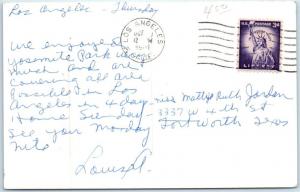 Los Angeles - Thursday
We enjoyed
Yosemite Park very
much and are
covering all area
possible in Los
Angeles in 4 days
Home Sunday -
See you Monday
Nite
Louise
LOS ANGELES
OCT
12
CALIF.
U.S. POSTAGE
3¢
Miss Mattie Ruth Jordan
3337 W 4th St
Fort Worth Texas